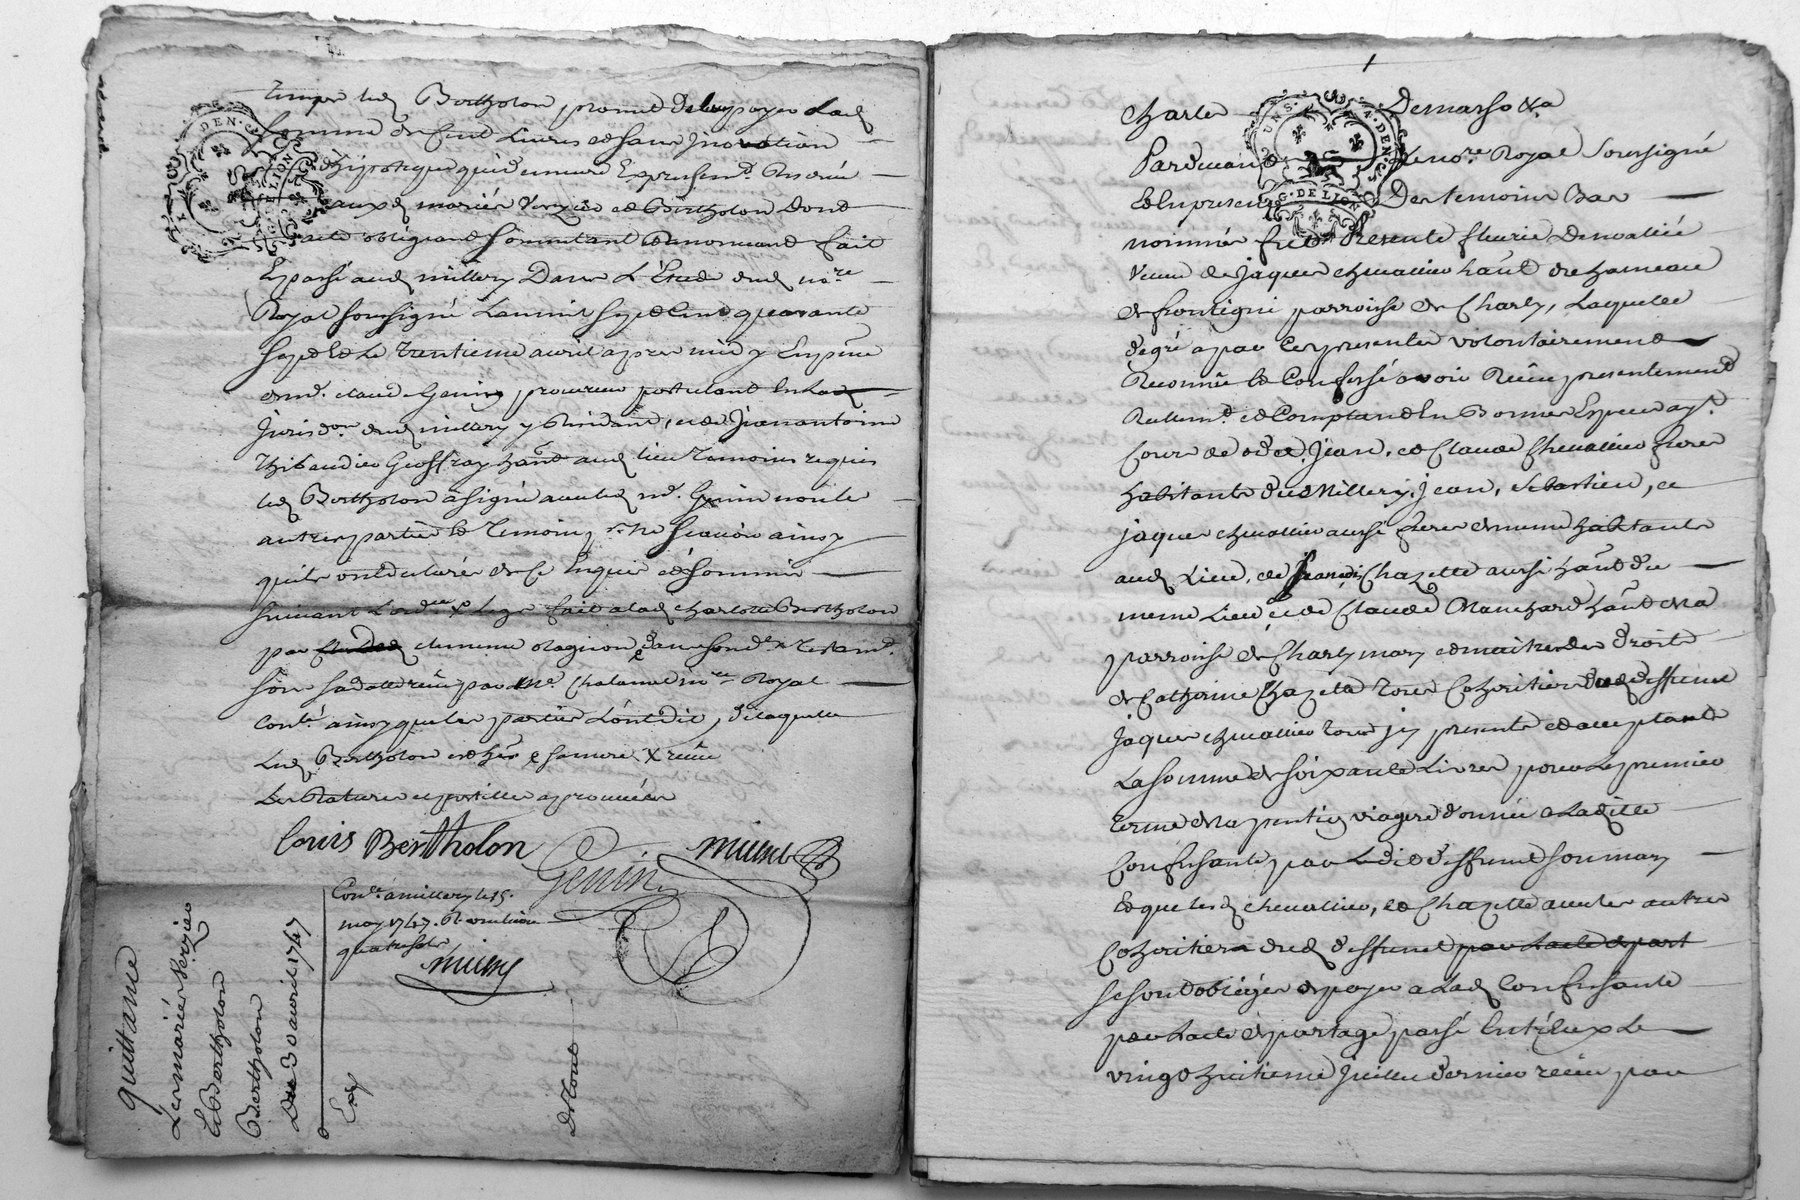 temps led Bertholon promet de luy payer lad
somme de cent livres et sans inovation
d'hipoteque qui demeure expressemt. reservé
auxd mariés Verzieu et Bertholon dont
acte obligeant soumettant renonceant fait
et passé aud millery dans l'Etude dud nore
Royal soussigné l'an mil sept cent quarante
sept et le trentieme avril apres midy En pnce
de me. claude Genin procureur postulant en lad
Jurisdon dud millery y residant, et de Jean antoine
Thibaudier Geoffray hant aud lieu temoins requis
led Bertholon a signé avec led me. Genin non les
autres parties et temoin pr. ne scavoir ainsy
qu'ils ont declarés de ce Enquis et sommés
suivant l'ordce x legs fait a lad charlotte Bertholon
par clemence Ragnion dans son de x testamt.
son sa dotte reçu par Me. Chalamel nore Royal
conté ainsy que les parties l'ont dit, de laquelle
led Bertholon est her & femme x reçue
les ratures et postilles aprouvées
Louis Bertholon
Genin
Conlé. à millery le 15.
may 1747. R.
quatre sols
quittance
Les mariés Verzieu
et Bertholon
a
Bertholon
Du 30 avril 1747
Exp
DeRout
Charles Demarso &a
Pardevant Le nore Royal soussigné
et En presence Des temoins Bas
nommés fut Presente fleurie Denvallié
veuve de jaques chevallier hant du hameau
de frontigni parroisse de Charly, laquelle
de gré a par ces presentes volontairement
Reconnu et Confessé avoir Reçu presentement
Reellemt. et Comptant En Bonnes Especes ayt.
cours de Jean, et Claude Chevallier freres
habitants dud Millery, Jean, Sebastien, et
jaques chevallier aussi freres de meme habitants
aud Lieu, de françois Chazette aussi hant du
meme Lieu et de Claude Blanchard hant de la
parroisse de Charly mary et maitre des droits
de Catherine Chazette tous Cohéritiers dud deffunt
Jaques chevallier tous icy presents et acceptants
La somme de soixante Livres pour le premier
terme de la pention viagere donnée a ladite
Confessante par ledit deffunt son mary
et que lesd chevallier, et Chazette avec les autres
Cohéritiers dud deffunt par l'acte de part
se sont obligés de payer a lad Confessante
par l'acte de partage passé Entr'eux le
vingt huitieme Juillet dernier reçu par